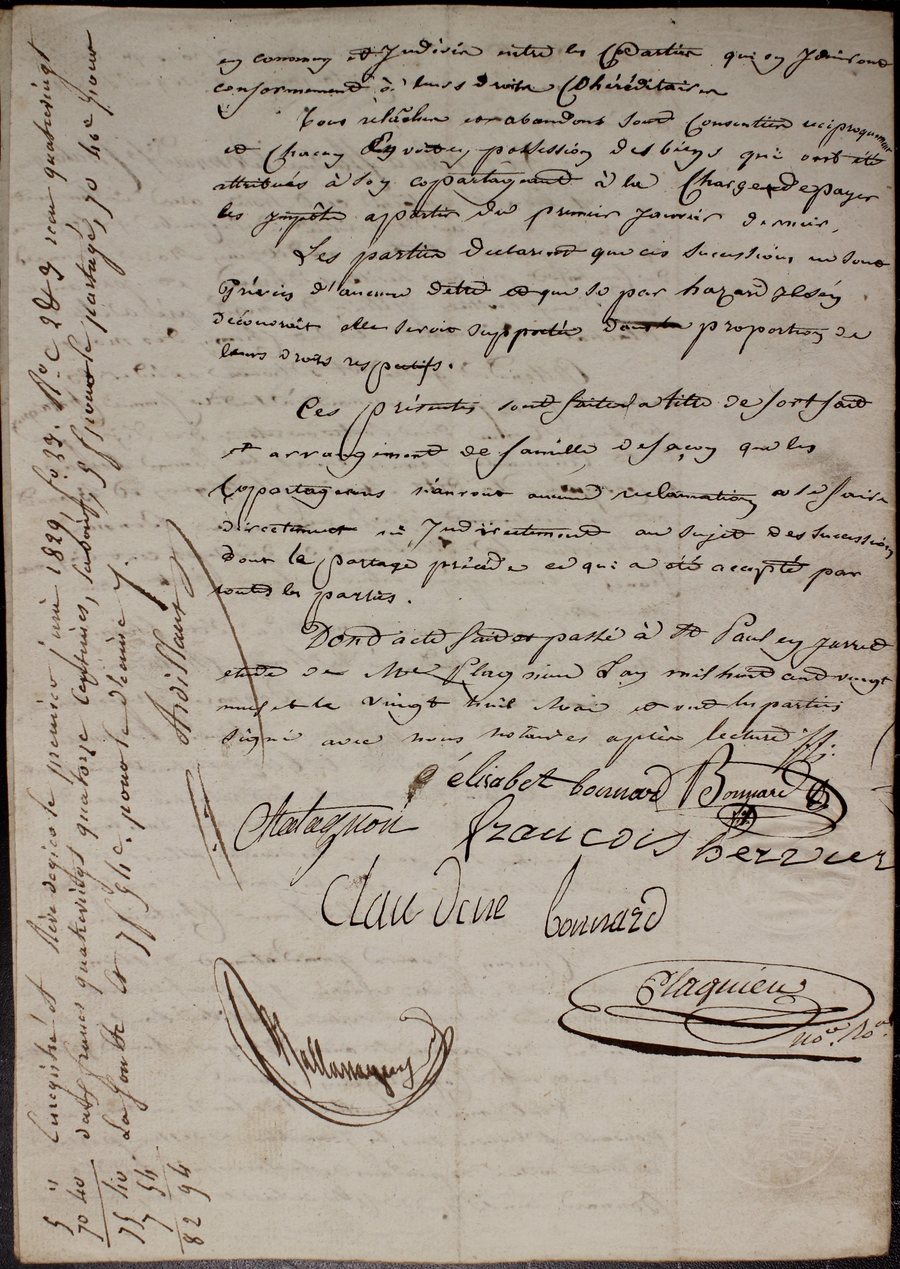 en commun et Indivis entre les Parties qui en Jouiront
conformement à leurs droits Cohéréditaires
Tous relâches et abandons sont Consentis reciproquement
et Chacun possession des biens qui ont été
attribués à son copartageant à la Charge de payer
les impôts apartir du premier Janvier dernier.
Les parties declarent que ces sucessions ne sont
Grévés d'aucune dette et que si par hazard Il s'en
découvroit elle seroit supportée dans la proportion de
leurs droits respectifs.
Ces présentes sont faites a titre de forfait
et arrangement de famille de façon que les
Copartageans n'auront aucune reclamation a se faire
directement ni Indirectement au sujet des sucessions
dont le partage précéde ce qui a été accepté par
toutes les parties.
Dont acte fait et passé à St Paul en Jarred
etude de Me Plagnieu L'an mil huit cent vingt
neuf et le vingt huit Mai et ont les parties
signé avec nous notaires après lecture
élisabet bonnard Bonnard
Chatagnon francois hervier
Clau dine bonnard
Plagnieu
Nore Ro
Enregistré à Rive de gier le premier juin 1829, fo 33. Ro c 2 & 9 reçu quatrevingt
deux francs quatrevingt quatorze centimes, savoir, 5 f pour le partage, 70 f 40c pour
la soulte et 7 f 54c. pour le dixieme
5 "
70 40
75 40
7 54
82 94